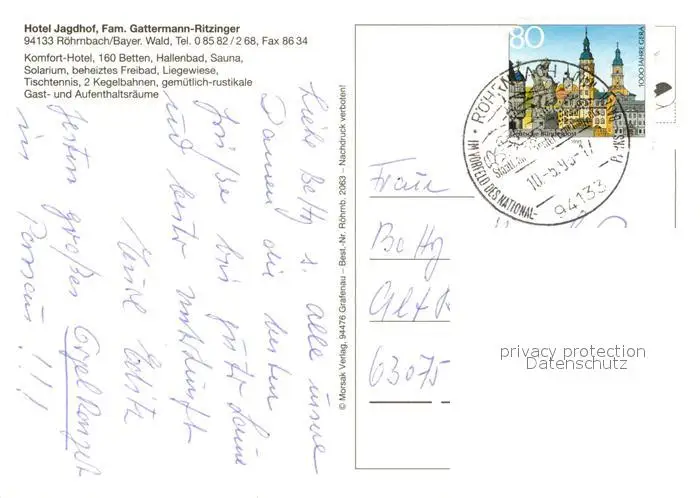 Hotel Jagdhof, Fam. Gattermann-Ritzinger
94133 Röhrnbach/Bayer. Wald, Tel. 0 85 82 / 2 68, Fax 86 34
Komfort-Hotel, 160 Betten, Hallenbad, Sauna,
Solarium, beheiztes Freibad, Liegewiese,
Tischtennis, 2 Kegelbahnen, gemütlich-rustikale
Gast- und Aufenthaltsräume
Liebe Betty u. alle unsre
Damen die besten
Grüße bei guter Laune
und bester Unterkunft
Edith
Gestern großes Orgelkonzert
in Passau !!!
© Morsak Verlag, 94476 Grafenau – Best.-Nr. Röhrnb. 2063 – Nachdruck verboten!
80
1000 JAHRE GERA
Deutsche Bundespost
IM VORFELD DES NATIONAL-
94133
Frau
Betty
63075
privacy protection
Datenschutz